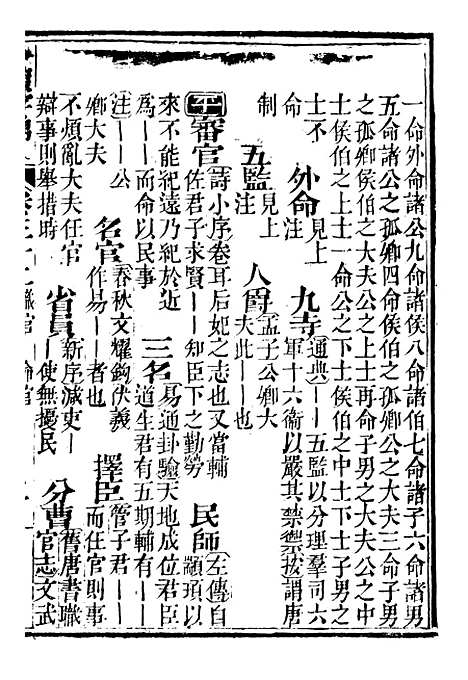 一命外命諸公九命諸侯八命諸伯七命諸子六命諸男
五命諸公之孤卿四命侯伯之孤卿公之大夫三命子男
之孤卿侯伯之大夫公之上士再命子男之大夫公之中
士侯伯之上士一命公之下士侯伯之中士下士子男之
士不
命
外命
見上
注
九寺
通典――五監以分理羣司六
軍十六衞以嚴其禁禦按謂唐
制
五監
見上
注
人爵
孟子公卿大
夫此――也
平
審官
詩小序卷耳后妃之志也又當輔
佐君子求賢――知臣下之勤勞
民師
左傳自
顓頊以
來不能紀遠乃紀於近
為――而命以民事
三名
易通卦驗天地成位君臣
道生君有五期輔有――
注――公
卿大夫
名官
春秋文耀鉤伏羲
作易――者也
擇臣
管子君――
而任官則事
不煩亂大夫任官
辯事則舉措時
省員
新序減吏―
―使無擾民
分曹
舊唐書職
官志文武